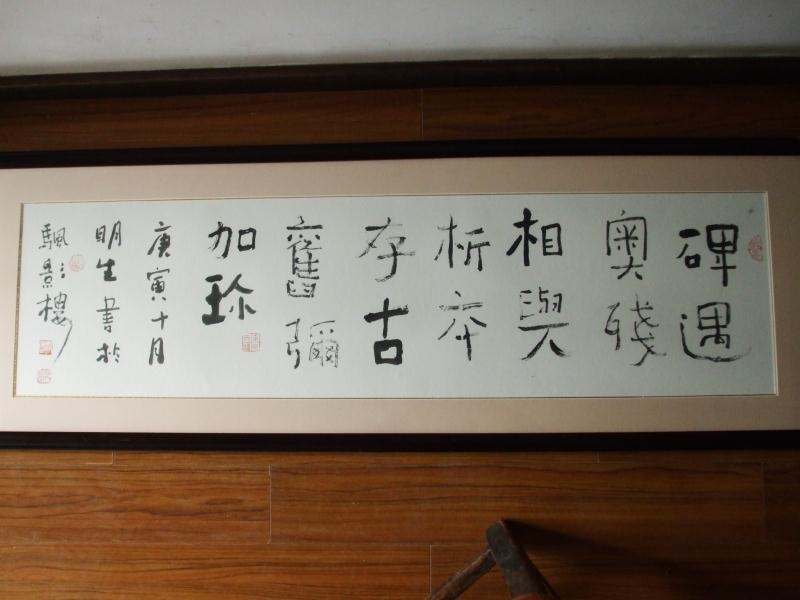 碑遇
奥残
相與
析本
存古
舊彌
加珎
庚寅十月
明生書於
飄景樓